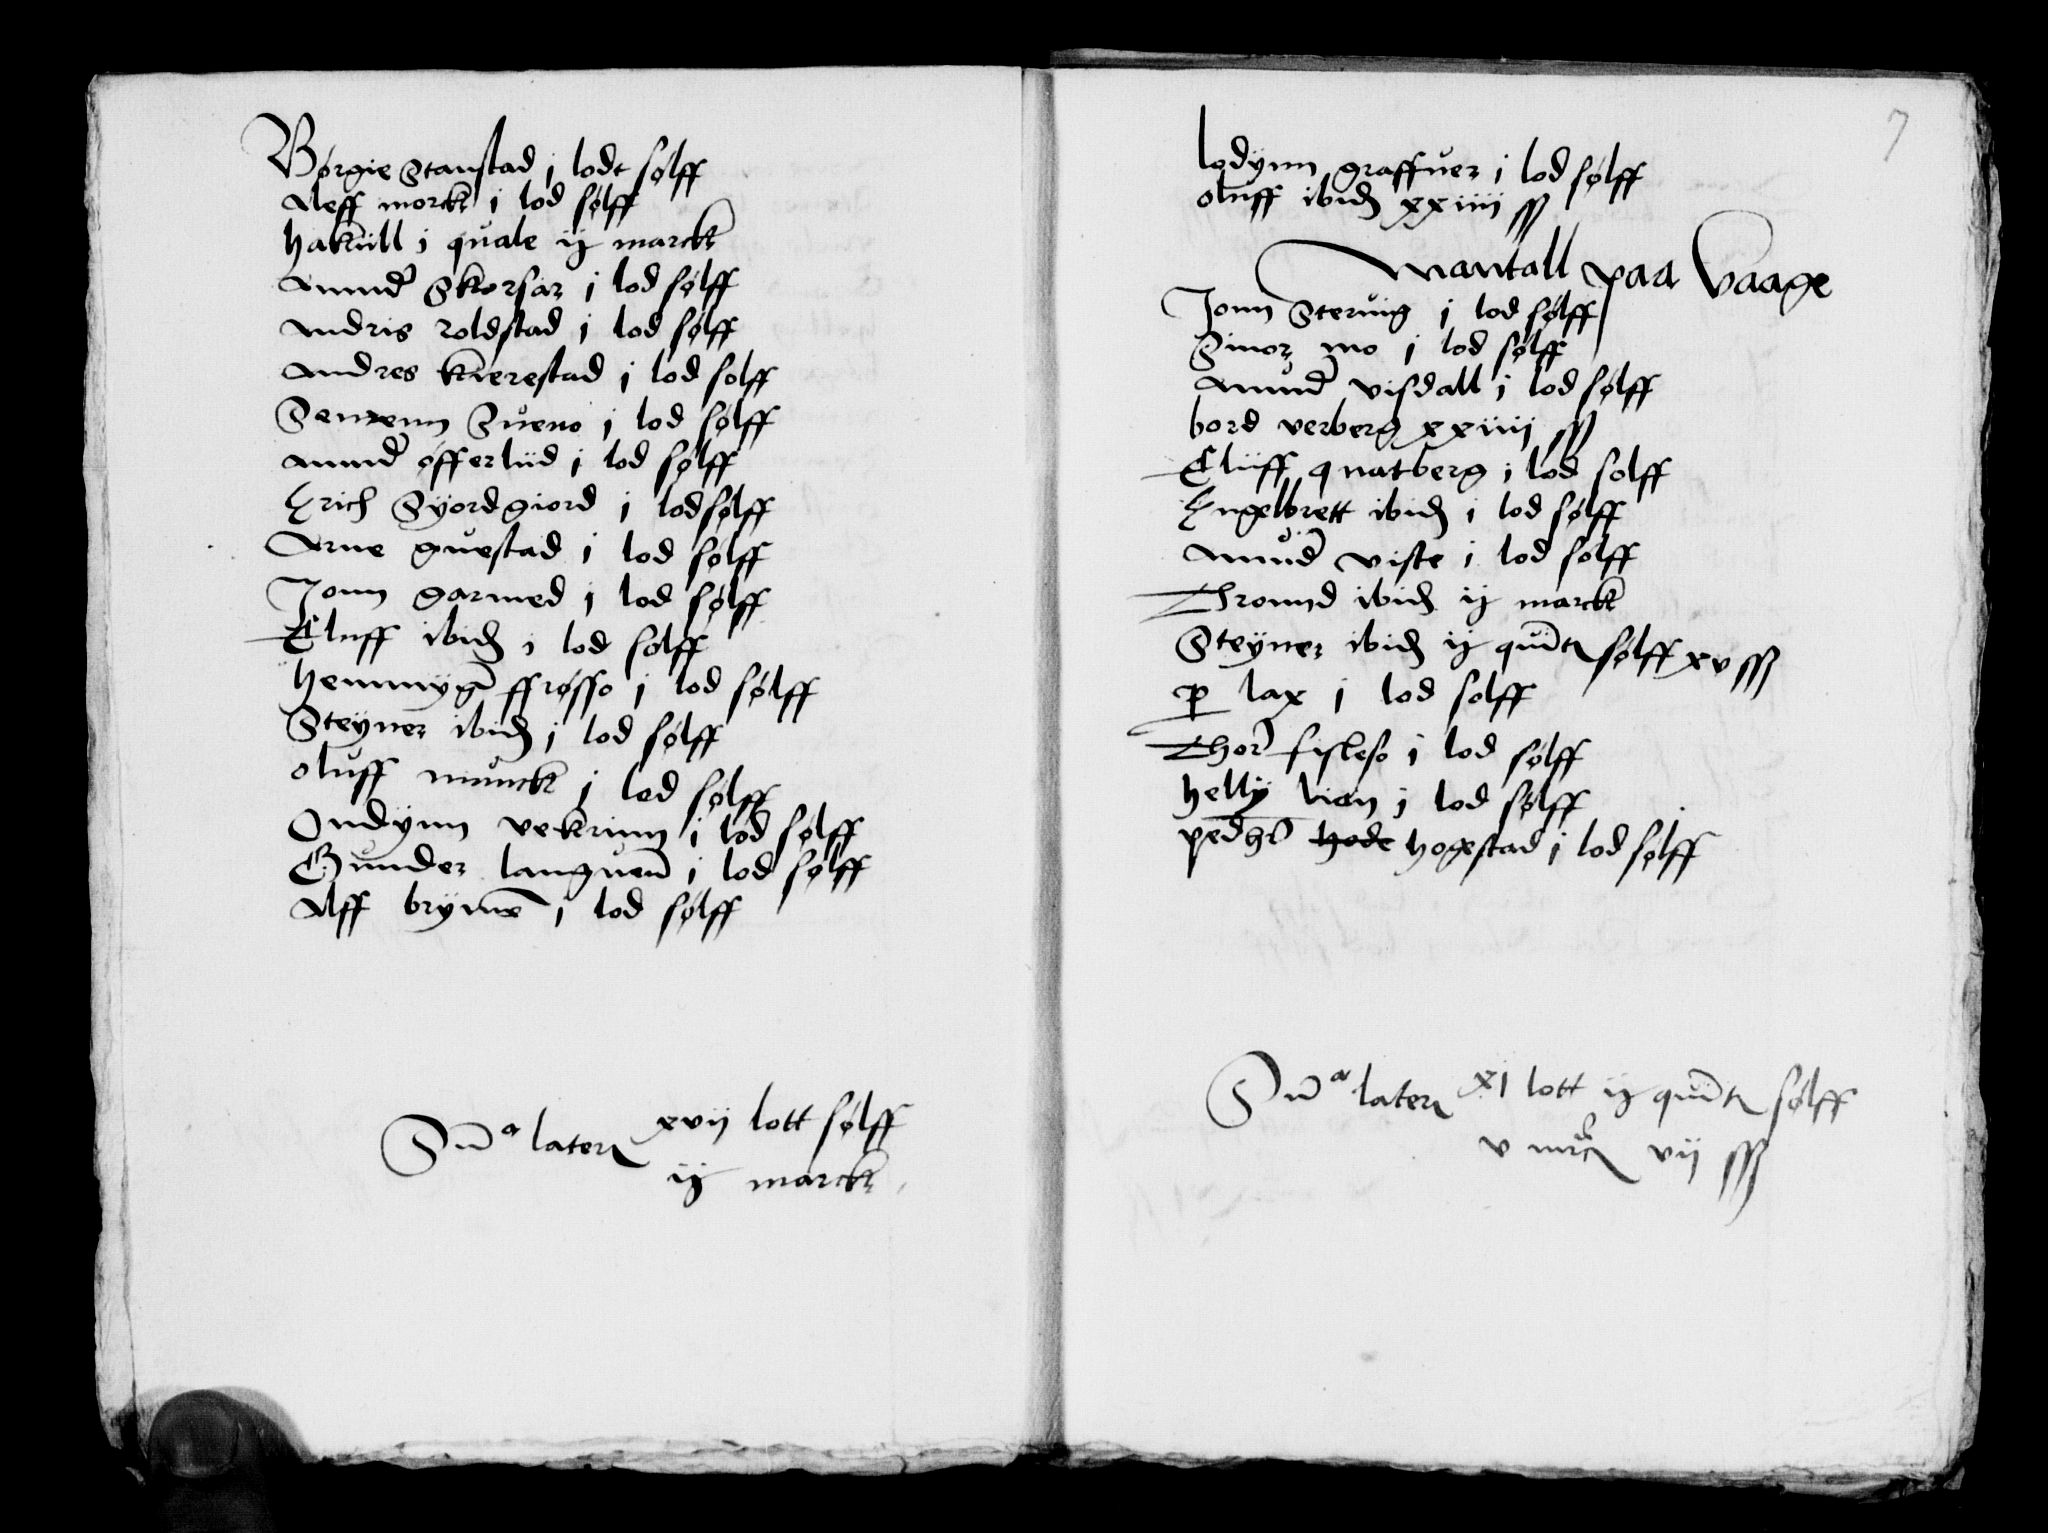 Børgie Stanstad j lodt sølff
Aleff morck i lod sølff
hakull i quale ij marck
Amund Skorsar j lod sølff
Andris roldstad j lod sølff
Andres kierestad j lod sølff
Senxenn Sueno j lod sølff
Amund øfferliid j lod sølff
Erich Syordgiord j lod sølff
Arne guestad j lod sølff
Jonn garmed j lod sølff
Eluff ibid j lod sølff
hemmyng ffrøsso j lod sølff
Steyner ibid j lod sølff
oluff munck j lod sølff
Ondynn vekrinn j lod sølff
Gunder languenn j lod sølff
Alff brymen j lod sølff
Suma lateris xvij lott sølff
ij marck
7
lodynn graffuer j lod sølff
oluff ibid xxiiij ß
Mantall paa Vaage
Jonn Steruig j lod sølff
Simor mo j lod sølff
Amund visdall j lod sølff
bord verberg xxiiij ß
Eluff quatberg j lod sølff
Engelbrett ibid i lod sølff
Amund viste i lod sølff
Thronnd ibid ij marck
Steyner ibid ij quintin sølff xv ß
per lax j lod sølff
Thor fisleso j lod sølff
helly lien j lod sølff
peder hode hogestad j lod sølff
Suma lateris xj lott ij quintin sølff
v mrck vij ß